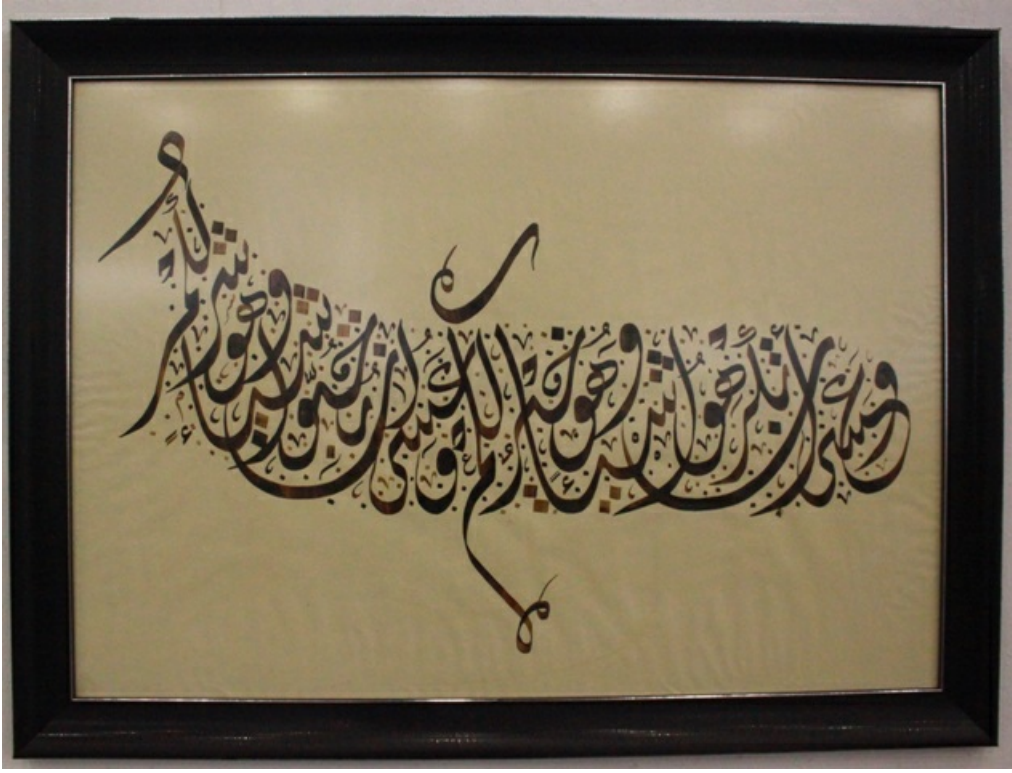 وَعَسَى أَنْ تَكْرَهُوا شَيْئًا وَهُوَ خَيْرٌ لَكُمْ وَعَسَى أَنْ تُحِبُّوا شَيْئًا وَهُوَ شَرٌّ لَكُمْ